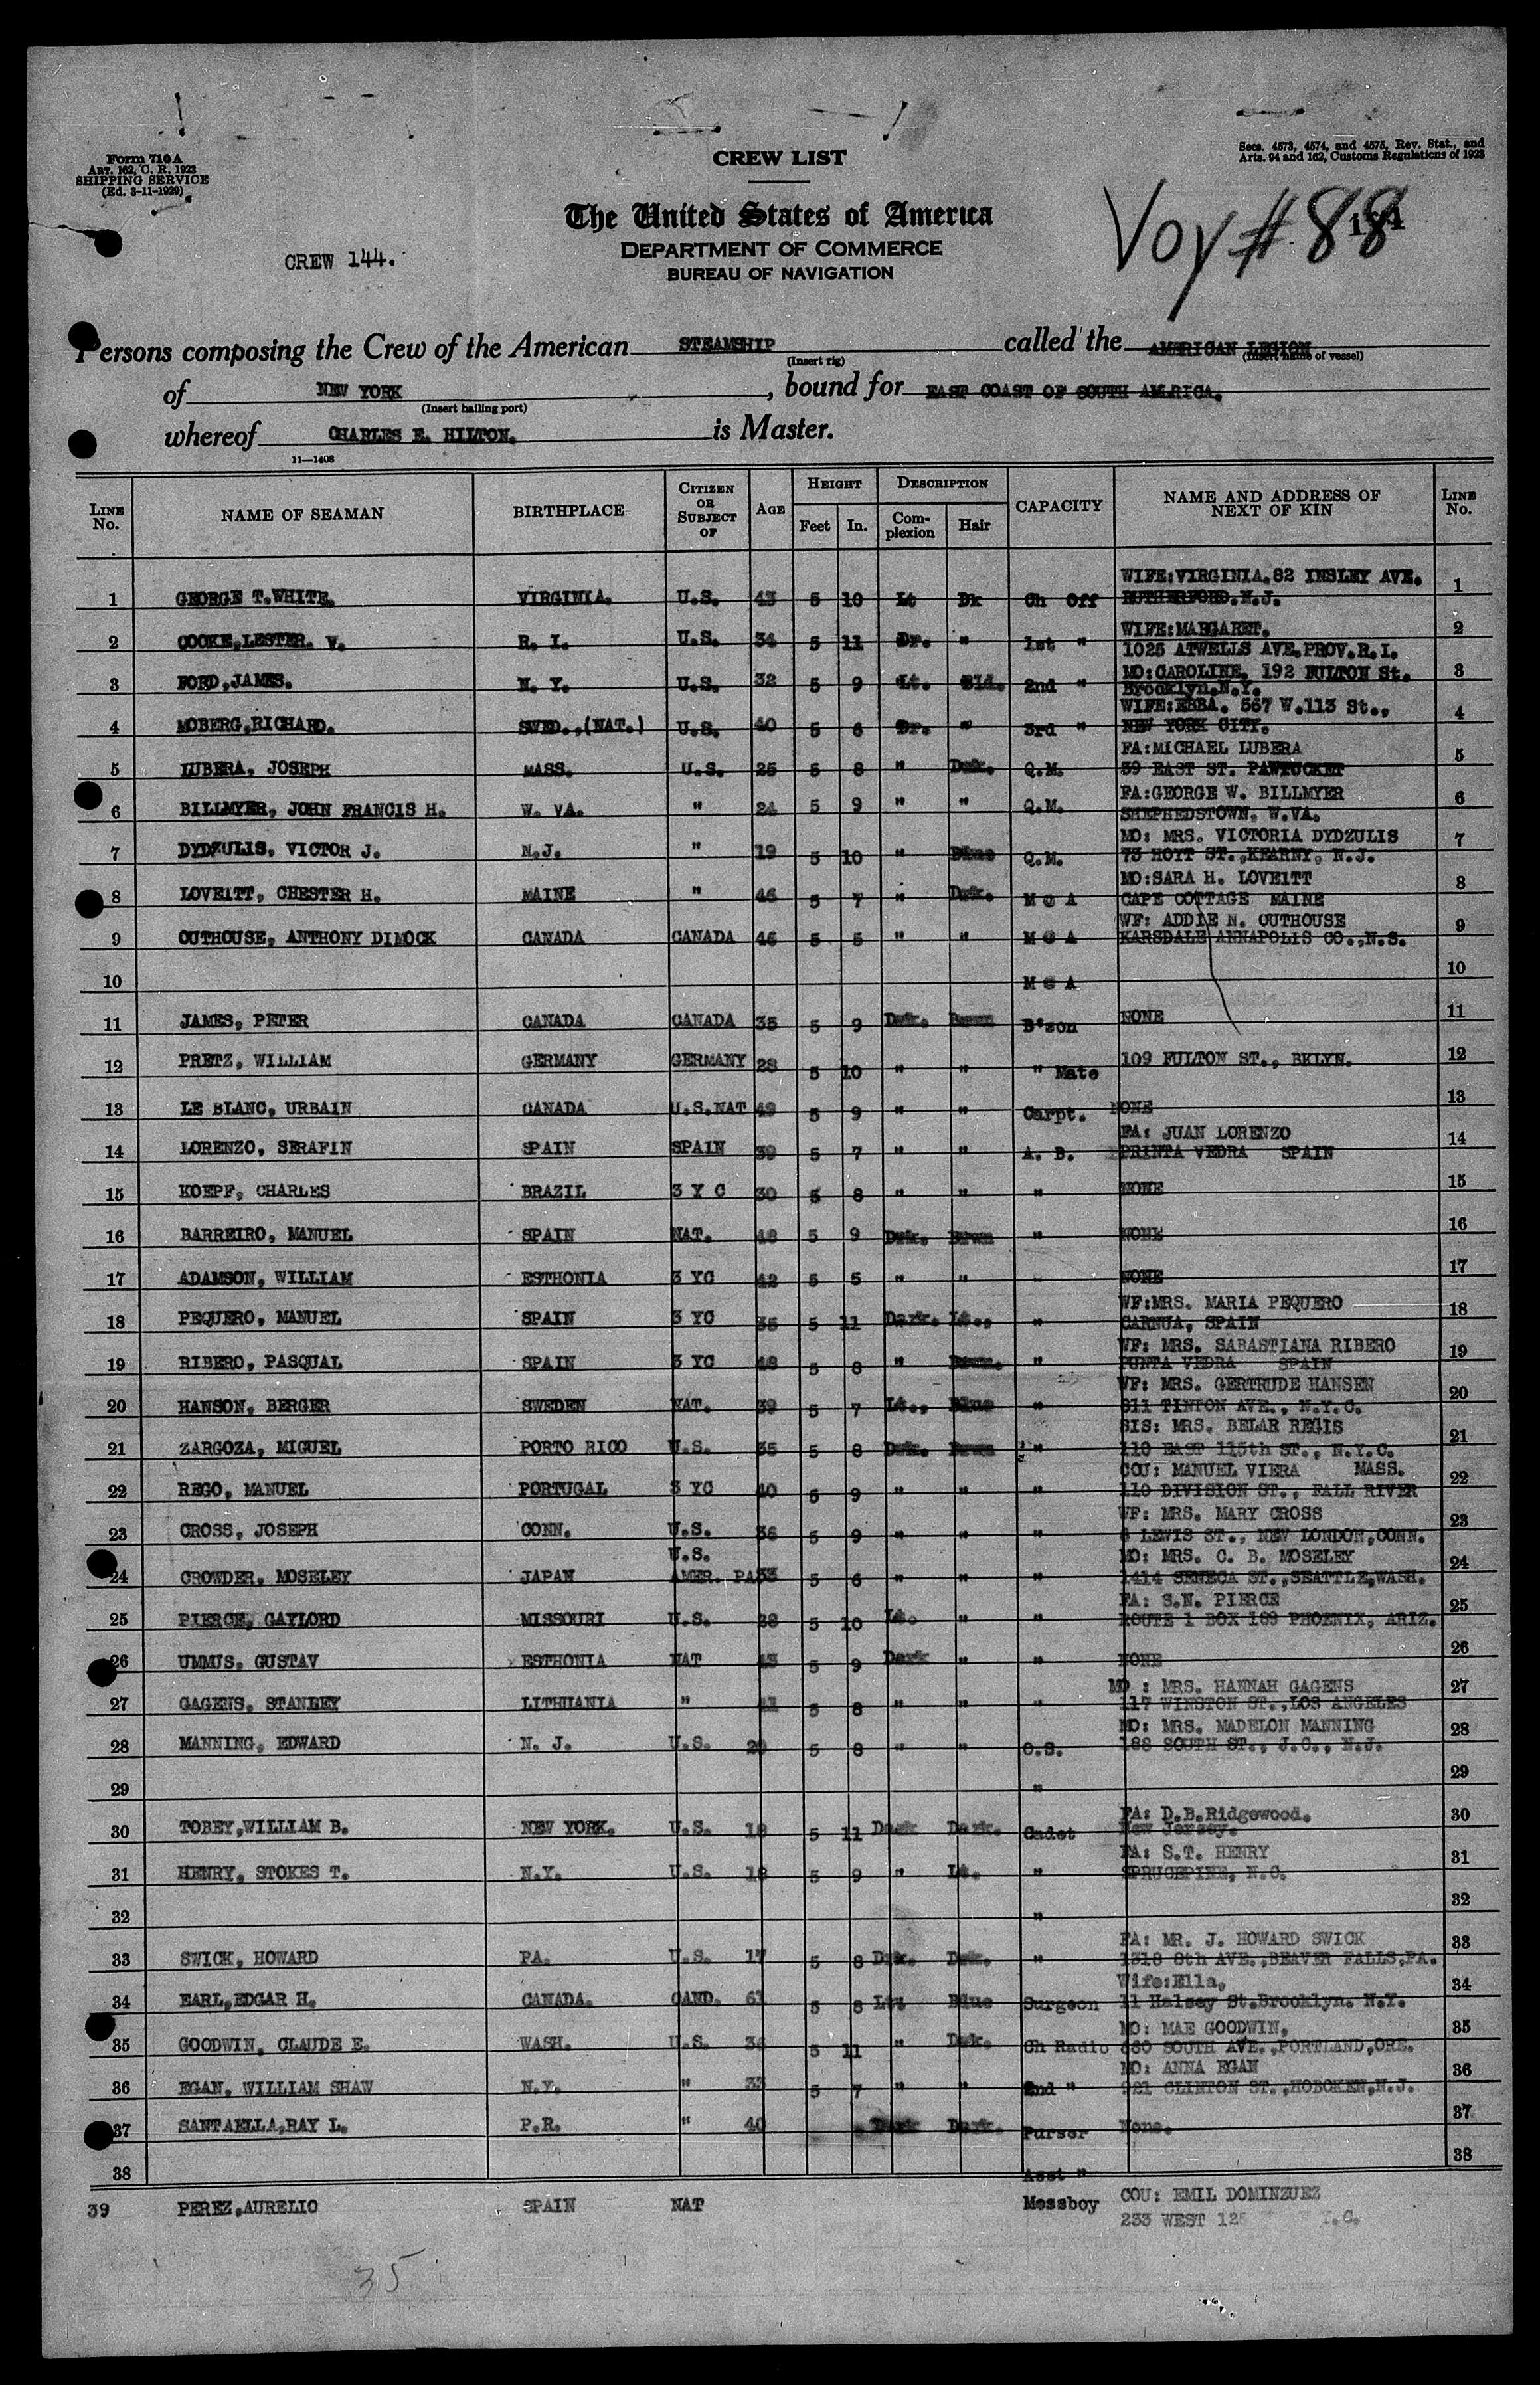 Form 710A
ART. 162, C. R. 1923
SHIPPING SERVICE
(Ed. 3-11-1929)
CREW LIST
Secs. 4573, 4574, and 4575, Rev. Stat., and
Arts. 94 and 162, Customs Regulations of 1923
The United States of America
DEPARTMENT OF COMMERCE
BUREAU OF NAVIGATION
CREW 144.
Voy # 88
Persons composing the Crew of the American STEAMSHIP called the AMERICAN LEGION
(Insert rig) (Insert name of vessel)
of NEW YORK, bound for EAST COAST OF SOUTH AMERICA.
(Insert hailing port)
whereof CHARLES E. HILTON. is Master.
11—1408
LINE No. NAME OF SEAMAN BIRTHPLACE CITIZEN OR SUBJECT OF AGE HEIGHT Feet In. DESCRIPTION Complexion Hair CAPACITY NAME AND ADDRESS OF NEXT OF KIN LINE No.
WIFE:VIRGINIA.82 INSLEY AVE.
1 GEORGE T.WHITE. VIRGINIA. U.S. 43 5 10 Lt Dk Ch Off RUTHERFORD.N.J. 1
WIFE:MARGARET.
2 COOKE,LESTER. V. R. I. U.S. 34 5 11 Dr. " 1st " 1025 ATWELLS AVE.PROV.R.I. 2
MO:CAROLINE, 192 FULTON St.
3 FORD,JAMES. N. Y. U.S. 32 5 9 Lt. Bld. 2nd " Brooklyn.N.Y. 3
WIFE:EBBA. 567 W.113 St.,
4 MOBERG,RICHARD. SWED.,(NAT.) U.S. 40 5 6 Dr. " 3rd " NEW YORK CITY. 4
FA:MICHAEL LUBERA
5 LUBERA, JOSEPH MASS. U.S. 25 5 8 " Drk. Q.M. 39 EAST ST. PAWTUCKET 5
FA:GEORGE W. BILLMYER
6 BILLMYER, JOHN FRANCIS H. W. VA. " 24 5 9 " " Q.M. SHEPHEDSTOWN, W.VA. 6
MO: MRS. VICTORIA DYDZULIS
7 DYDZULIS, VICTOR J. N.J. " 19 5 10 " Q.M. 73 HOYT ST.,KEARNY, N.J. 7
MO:SARA H. LOVEITT
8 LOVEITT, CHESTER H. MAINE " 46 5 7 " Drk. M C A CAPE COTTAGE MAINE 8
WF: ADDIE N. OUTHOUSE
9 OUTHOUSE, ANTHONY DIMOCK CANADA CANADA 46 5 5 " " M C A KARSDALE ANNAPOLIS CO.,N.S. 9
10 M C A 10
11 JAMES, PETER CANADA CANADA 35 5 9 Drk. Brown B'son NONE 11
12 PRETZ, WILLIAM GERMANY GERMANY 28 5 10 " " " Mate 109 FULTON ST., BKLYN. 12
13 LE BLANC, URBAIN CANADA U.S.NAT 49 5 9 " " Carpt. NONE 13
FA: JUAN LORENZO
14 LORENZO, SERAFIN SPAIN SPAIN 39 5 7 " " A. B. PRINTA VEDRA SPAIN 14
15 KOEPF, CHARLES BRAZIL 3 Y C 30 5 8 " " " NONE 15
16 BARREIRO, MANUEL SPAIN NAT. 48 5 9 Drk. Brwn " NONE 16
17 ADAMSON, WILLIAM ESTHONIA 3 YC 42 5 5 " " " NONE 17
WF:MRS. MARIA PEQUERO
18 PEQUERO, MANUEL SPAIN 3 YC 35 5 11 Dark. Lt., " CARNUA, SPAIN 18
WF: MRS. SABASTIANA RIBERO
19 RIBERO, PASQUAL SPAIN 3 YC 48 5 8 " Brwn. " PUNTA VEDRA SPAIN 19
WF: MRS. GERTRUDE HANSEN
20 HANSON, BERGER SWEDEN NAT. 39 5 7 Lt., Blue " 811 TINTON AVE., N.Y.C. 20
SIS: MRS. BELAR REGIS
21 ZARGOZA, MIGUEL PORTO RICO U.S. 35 5 8 Drk. Brwn " 110 EAST 115th ST., N.Y.C. 21
COU: MANUEL VIERA MASS.
22 REGO, MANUEL PORTUGAL 3 YC 40 5 9 " " " 110 DIVISION ST., FALL RIVER 22
WF: MRS. MARY CROSS
23 CROSS, JOSEPH CONN. U.S. 36 5 9 " " " LEWIS ST., NEW LONDON,CONN. 23
U.S. MO: MRS. C. B. MOSELEY
24 CROWDER, MOSELEY JAPAN AMER. PA 33 5 6 " " " 1414 SENECA ST.,SEATTLE,WASH. 24
FA: S.N. PIERCE
25 PIERCE, GAYLORD MISSOURI U.S. 28 5 10 Lt. " " ROUTE 1 BOX 189 PHOENIX, ARIZ. 25
26 UMMUS, GUSTAV ESTHONIA NAT 43 5 9 Dark " " NONE 26
MO : MRS. HANNAH GAGENS
27 GAGENS, STANLEY LITHUANIA " 41 5 8 " " " 117 WINSTON ST.,LOS ANGELES 27
MO: MRS. MADELON MANNING
28 MANNING, EDWARD N. J. U.S. 20 5 8 " " O.S. 188 SOUTH ST., J.C., N.J. 28
29 " 29
FA: D.B.Ridgewood.
30 TOBEY,WILLIAM B. NEW YORK. U.S. 18 5 11 Dark Dark. Cadet New Jersey. 30
FA: S.T. HENRY
31 HENRY, STOKES T. N.Y. U.S. 18 5 9 " Lt. " SPRUCEPINE, N.C. 31
32 " 32
FA: MR. J. HOWARD SWICK
33 SWICK, HOWARD PA. U.S. 17 5 8 Drk. Drk. " 1318 8th AVE.,BEAVER FALLS,PA. 33
Wife:Ella,
34 EARL,EDGAR H. CANADA. CAND. 61 5 8 Lt. Blue Surgeon 11 Halsey St.Brooklyn. N.Y. 34
MO: MAE GOODWIN,
35 GOODWIN, CLAUDE E. WASH. U.S. 34 5 11 " Drk. Ch Radio 860 SOUTH AVE.,PORTLAND,ORE. 35
MO: ANNA EGAN
36 EGAN, WILLIAM SHAW N.Y. " 33 5 7 " " 2nd " 921 CLINTON ST.,HOBOKEN,N.J. 36
37 SANTAELLA,RAY L. P.R. " 40 Dark Dark. Purser None. 37
38 Asst " 38
39 PEREZ,AURELIO SPAIN NAT Messboy COU: EMIL DOMINZUEZ
233 WEST
35